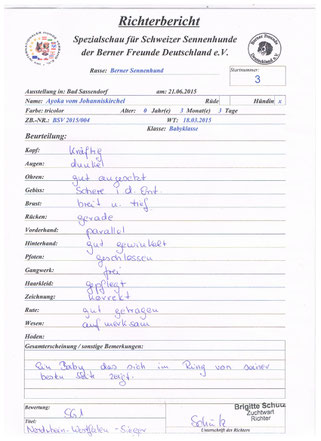 Richterbericht
Spezialschau für Schweizer Sennenhunde
der Berner Freunde Deutschland e.V.
Rasse: Berner Sennenhund
Startnummer:
3
Ausstellung in: Bad Sassendorf am: 21.06.2015
Name: Ayoka vom Johanniskirchel Rüde Hündin x
Farbe: tricolor Alter: 0 Jahr(e) 3 Monate(e) 3 Tage
ZB.-NR.: BSV 2015/004 WT: 18.03.2015
Klasse: Babyklasse
Beurteilung:
Kopf: kräftig
Augen: dunkel
Ohren: gut angesetzt
Gebiss: Schere i. d. Ont.
Brust: breit u. tief
Rücken: gerade
Vorderhand: parallel
Hinterhand: gut gewinkelt
Pfoten: geschlossen
Gangwerk: frei
Haarkleid: gepflegt
Zeichnung: korrekt
Rute: gut getragen
Wesen: aufmerksam
Hoden:
Gesamterscheinung / sonstige Bemerkungen:
Ein Baby das sich im Ring von seiner
besten Seite zeigt.
Bewertung: SG1
Titel:
Nordrhein-Westfalen-Sieger
Brigitte Schuu
Zuchtwart
Richter
Unterschrift des Richters